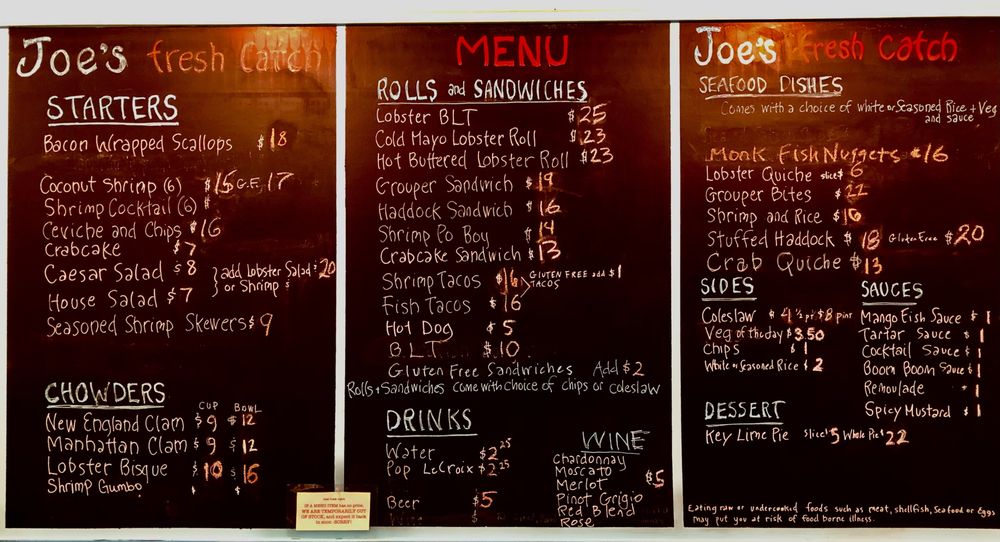 Joe's fresh Catch
STARTERS
Bacon Wrapped Scallops $18
Coconut Shrimp (6) $15 G.F. 17
Shrimp Cocktail (6) #
Ceviche and Chips $16
Crabcake $7
Caesar Salad $8
House Salad $7
} add Lobster Salad $20
or Shrimp $
Seasoned Shrimp Skewers $9
CHOWDERS
CUP BOWL
New England Clam $9 $12
Manhattan Clam $9 $12
Lobster Bisque $10 $16
Shrimp Gumbo $ $
MENU
ROLLS and SANDWICHES
Lobster BLT $25
Cold Mayo Lobster Roll $23
Hot Buttered Lobster Roll $23
Grouper Sandwich $19
Haddock Sandwich $16
Shrimp Po Boy $14
Crabcake Sandwich $13
Shrimp Tacos $16
Fish Tacos $16
GLUTEN FREE add $1
TACOS
Hot Dog $5
B.L.T. $10
Gluten Free Sandwiches Add $2
Rolls + Sandwiches come with choice of chips or coleslaw
DRINKS
Water $2.25
Pop LeCroix $2.25
Beer $5
WINE
Chardonnay
Moscato
Merlot $5
Pinot Grigio
Red Blend
Rose
If a MENU ITEM has no price,
WE ARE TEMPORARILY OUT
OF STOCK, and expect it back
in soon. SORRY!
Joe's fresh Catch
SEAFOOD DISHES
Comes with a choice of white or Seasoned Rice + Veg
and sauce
Monk Fish Nuggets $16
Lobster Quiche slice $6
Grouper Bites $22
Shrimp and Rice $16
Stuffed Haddock $18 Gluten Free $20
Crab Quiche $13
SIDES
Coleslaw $4 ½ pt $8 pint
Veg of the day $3.50
Chips $1
White or Seasoned Rice $2
SAUCES
Mango Fish Sauce $1
Tartar Sauce $1
Cocktail Sauce $1
Boom Boom Sauce $1
Remoulade $1
Spicy Mustard $1
DESSERT
Key Lime Pie Slice $5 Whole Pie $22
Eating raw or undercooked foods such as meat, shellfish, Seafood or Eggs
may put you at risk of food borne illness.